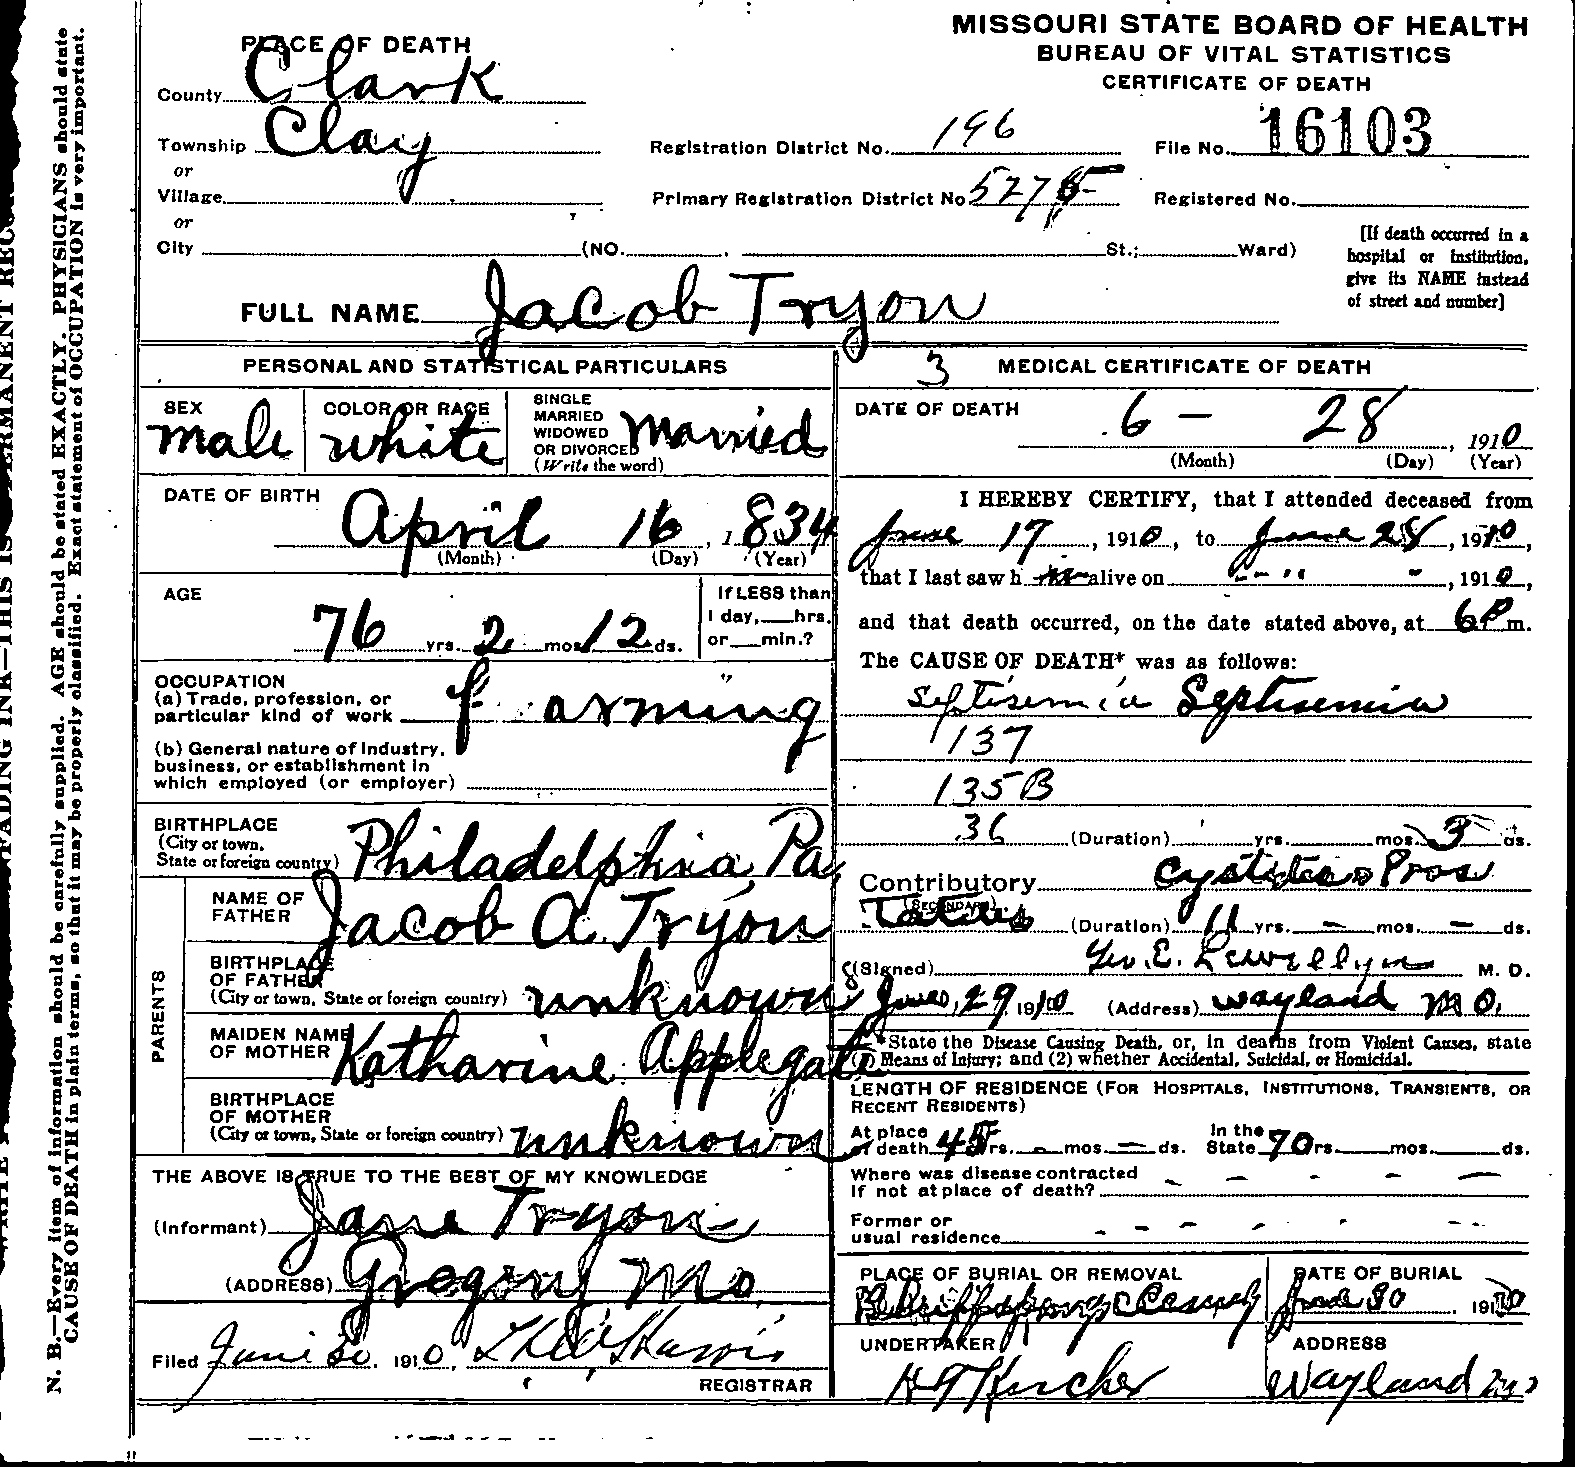 MISSOURI STATE BOARD OF HEALTH
BUREAU OF VITAL STATISTICS
CERTIFICATE OF DEATH
PLACE OF DEATH
County Clark
Township Clay
or
Village
or
City (NO. St.; Ward)
Registration District No. 196
File No. 16103
Primary Registration District No 5275
Registered No.
[If death occurred in a
hospital or institution,
give its NAME instead
of street and number]
FULL NAME Jacob Tryon
PERSONAL AND STATISTICAL PARTICULARS
SEX
male
COLOR OR RACE
white
SINGLE
MARRIED
WIDOWED
OR DIVORCED
(Write the word)
Married
DATE OF BIRTH
April 16, 1834
(Month) (Day) (Year)
AGE
76 yrs. 2 mos 12 ds.
If LESS than
1 day, hrs.
or min.?
OCCUPATION
(a) Trade, profession, or
particular kind of work farming
(b) General nature of Industry,
business, or establishment in
which employed (or employer)
BIRTHPLACE
(City or town,
State or foreign country) Philadelphia, Pa,
PARENTS
NAME OF
FATHER Jacob A. Tryon
BIRTHPLACE
OF FATHER
(City or town, State or foreign country) unknown
MAIDEN NAME
OF MOTHER Katharine Applegate
BIRTHPLACE
OF MOTHER
(City or town, State or foreign country) unknown
THE ABOVE IS TRUE TO THE BEST OF MY KNOWLEDGE
(Informant) Jane Tryon
(ADDRESS) Gregory Mo
Filed June 30, 1910,
REGISTRAR
3 MEDICAL CERTIFICATE OF DEATH
DATE OF DEATH
6 - 28, 1910
(Month) (Day) (Year)
I HEREBY CERTIFY, that I attended deceased from
June 17, 1910, to June 28, 1910,
that I last saw h im alive on " " ", 1910,
and that death occurred, on the date stated above, at 6 P m.
The CAUSE OF DEATH* was as follows:
Septisemia Septisemia
137
135B
36 (Duration) yrs. mos. 5 ds.
Contributory Cystitis & Pros
(SECONDARY)
tatitis (Duration) 11 yrs. - mos. - ds.
(Signed) Geo. E. Lewellyn M. D.
June, 29 1910 (Address) Wayland Mo.
*State the Disease Causing Death, or, in deaths from Violent Causes, state
(1) Means of Injury; and (2) whether Accidental, Suicidal, or Homicidal.
LENGTH OF RESIDENCE (FOR HOSPITALS, INSTITUTIONS, TRANSIENTS, OR
RECENT RESIDENTS)
At place
of death 45 yrs. - mos. - ds.
In the
State 70 rs. mos. ds.
Where was disease contracted
If not at place of death? - - - - -
Former or
usual residence - - - - -
PLACE OF BURIAL OR REMOVAL
DATE OF BURIAL
June 30, 1910
UNDERTAKER
H T Kircher
ADDRESS
Wayland Mo
N. B.—Every item of information should be carefully supplied. AGE should be stated EXACTLY. PHYSICIANS should state
CAUSE OF DEATH in plain terms, so that it may be properly classified. Exact statement of OCCUPATION is very important.